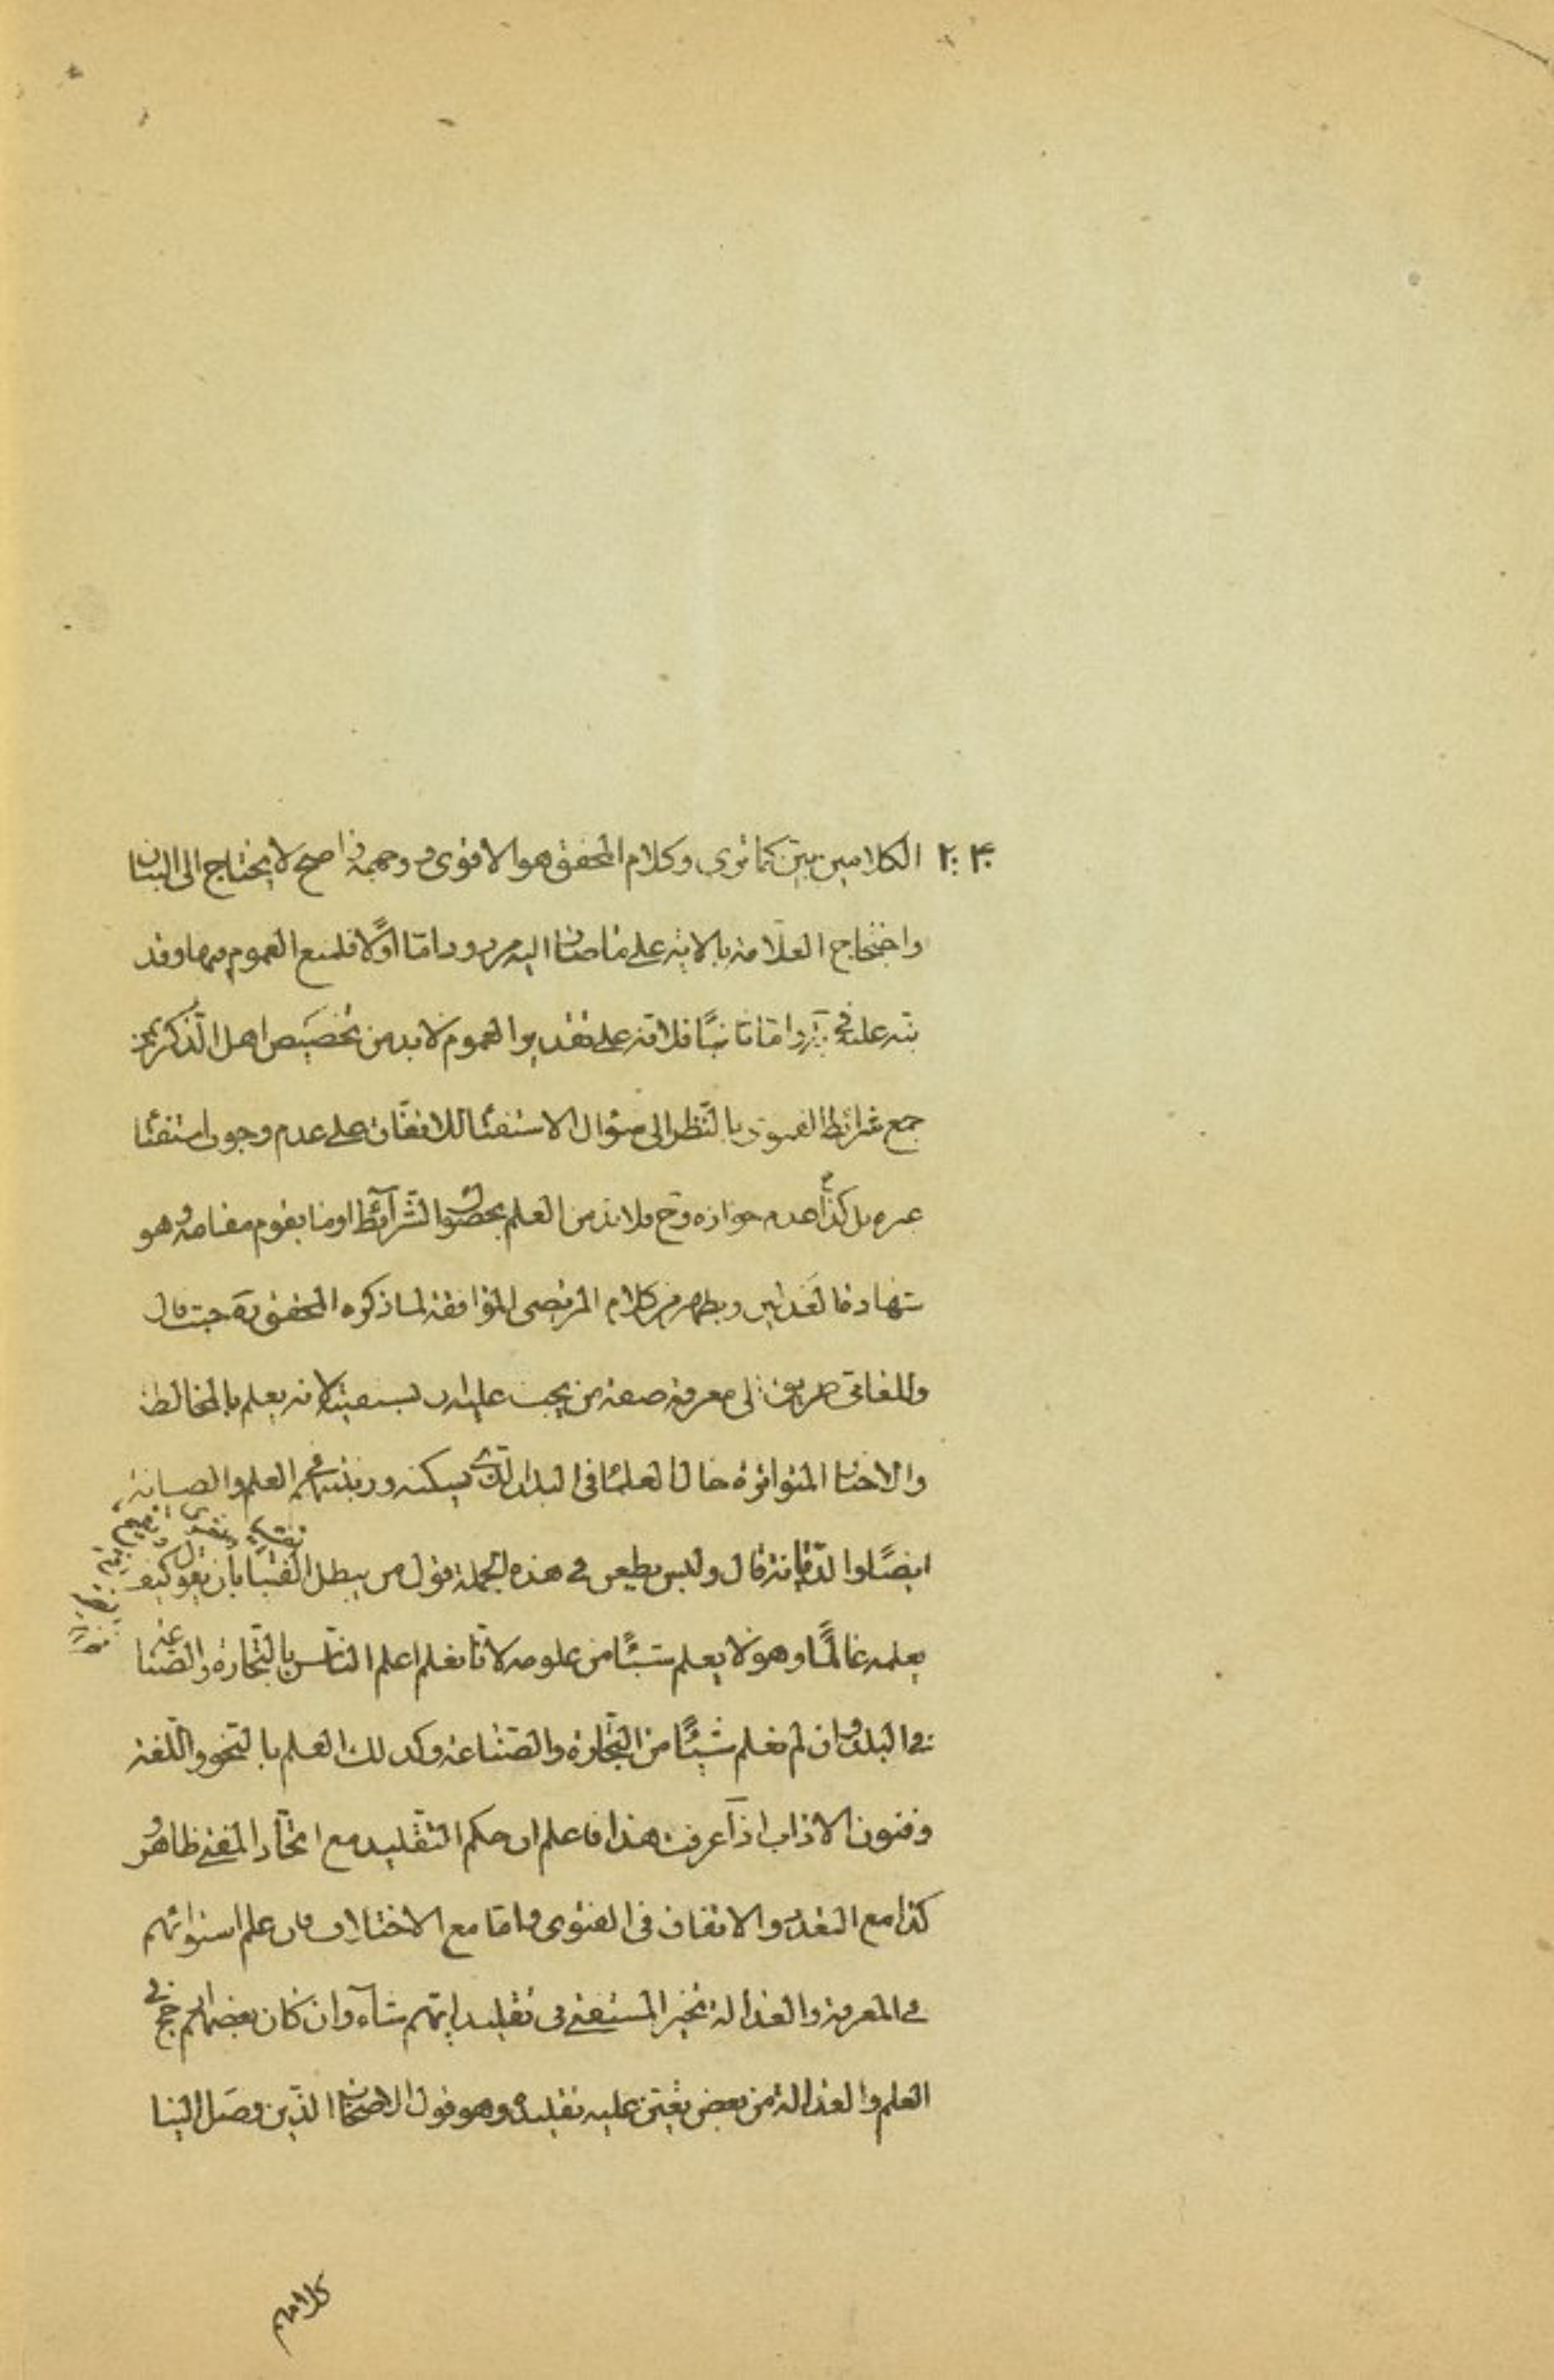 ۲۰۴ الكلامين بيّن كما ترى وكلام المحقق هو الاقوى ووجهه واضح لا يحتاج الى البيان
واحتجاج العلامة بالاية على ما صار اليه مردود اما اولًا فلمنع العموم فيها وقد
نبّه عليه في واما ثانيًا فلانه على تقدير العموم لا بد من تخصيص اهل الذكر بمن
جمع شرائط الفتوى بالنظر الى سؤال الاستفتا للاتفاق على عدم وجوب استفتا
غيره بل عدم جوازه وح فلا بد من العلم بحصول الشرآئط او ما يقوم مقامه وهو
شهادة العدلين ويظهر من كلام المرتضى الموافقة لما ذكره المحقق ره حيث قال
وللعامي طريق الى معرفة صفة من يجب عليه ان يستفتيه لانه يعلم بالمخالطة
والاخبار المتواترة حال العلما في البلد الذي يسكنه ورتبتهم في العلم والصيانة
ايضًا والديانة قال وليس يطعن في هذه الجملة قول من يبطل الفتيا بان يقول كيف
يعلمه عالمًا وهو لا يعلم شيئًا من علومه لانا نعلم اعلم الناس بالتجارة والصناعة
في البلد وان لم نعلم شيئًا من التجارة والصناعة وكذلك العلم بالنحو واللغة
وفنون الاداب اذا عرفت هذا فاعلم ان حكم التقليد مع اتحاد المفتي ظاهر و
كذا مع التعدد والاتفاق في الفتوى واما مع الاختلاف فان علم استوائهم
في المعرفة والعدالة تخير المستفتي في تقليد ايّهم شآء وان كان بعضهم ارجح في
العلم والعدالة من بعض تعيّن عليه تقليده وهو قول الاصحاب الذين وصل الينا
كلامهم